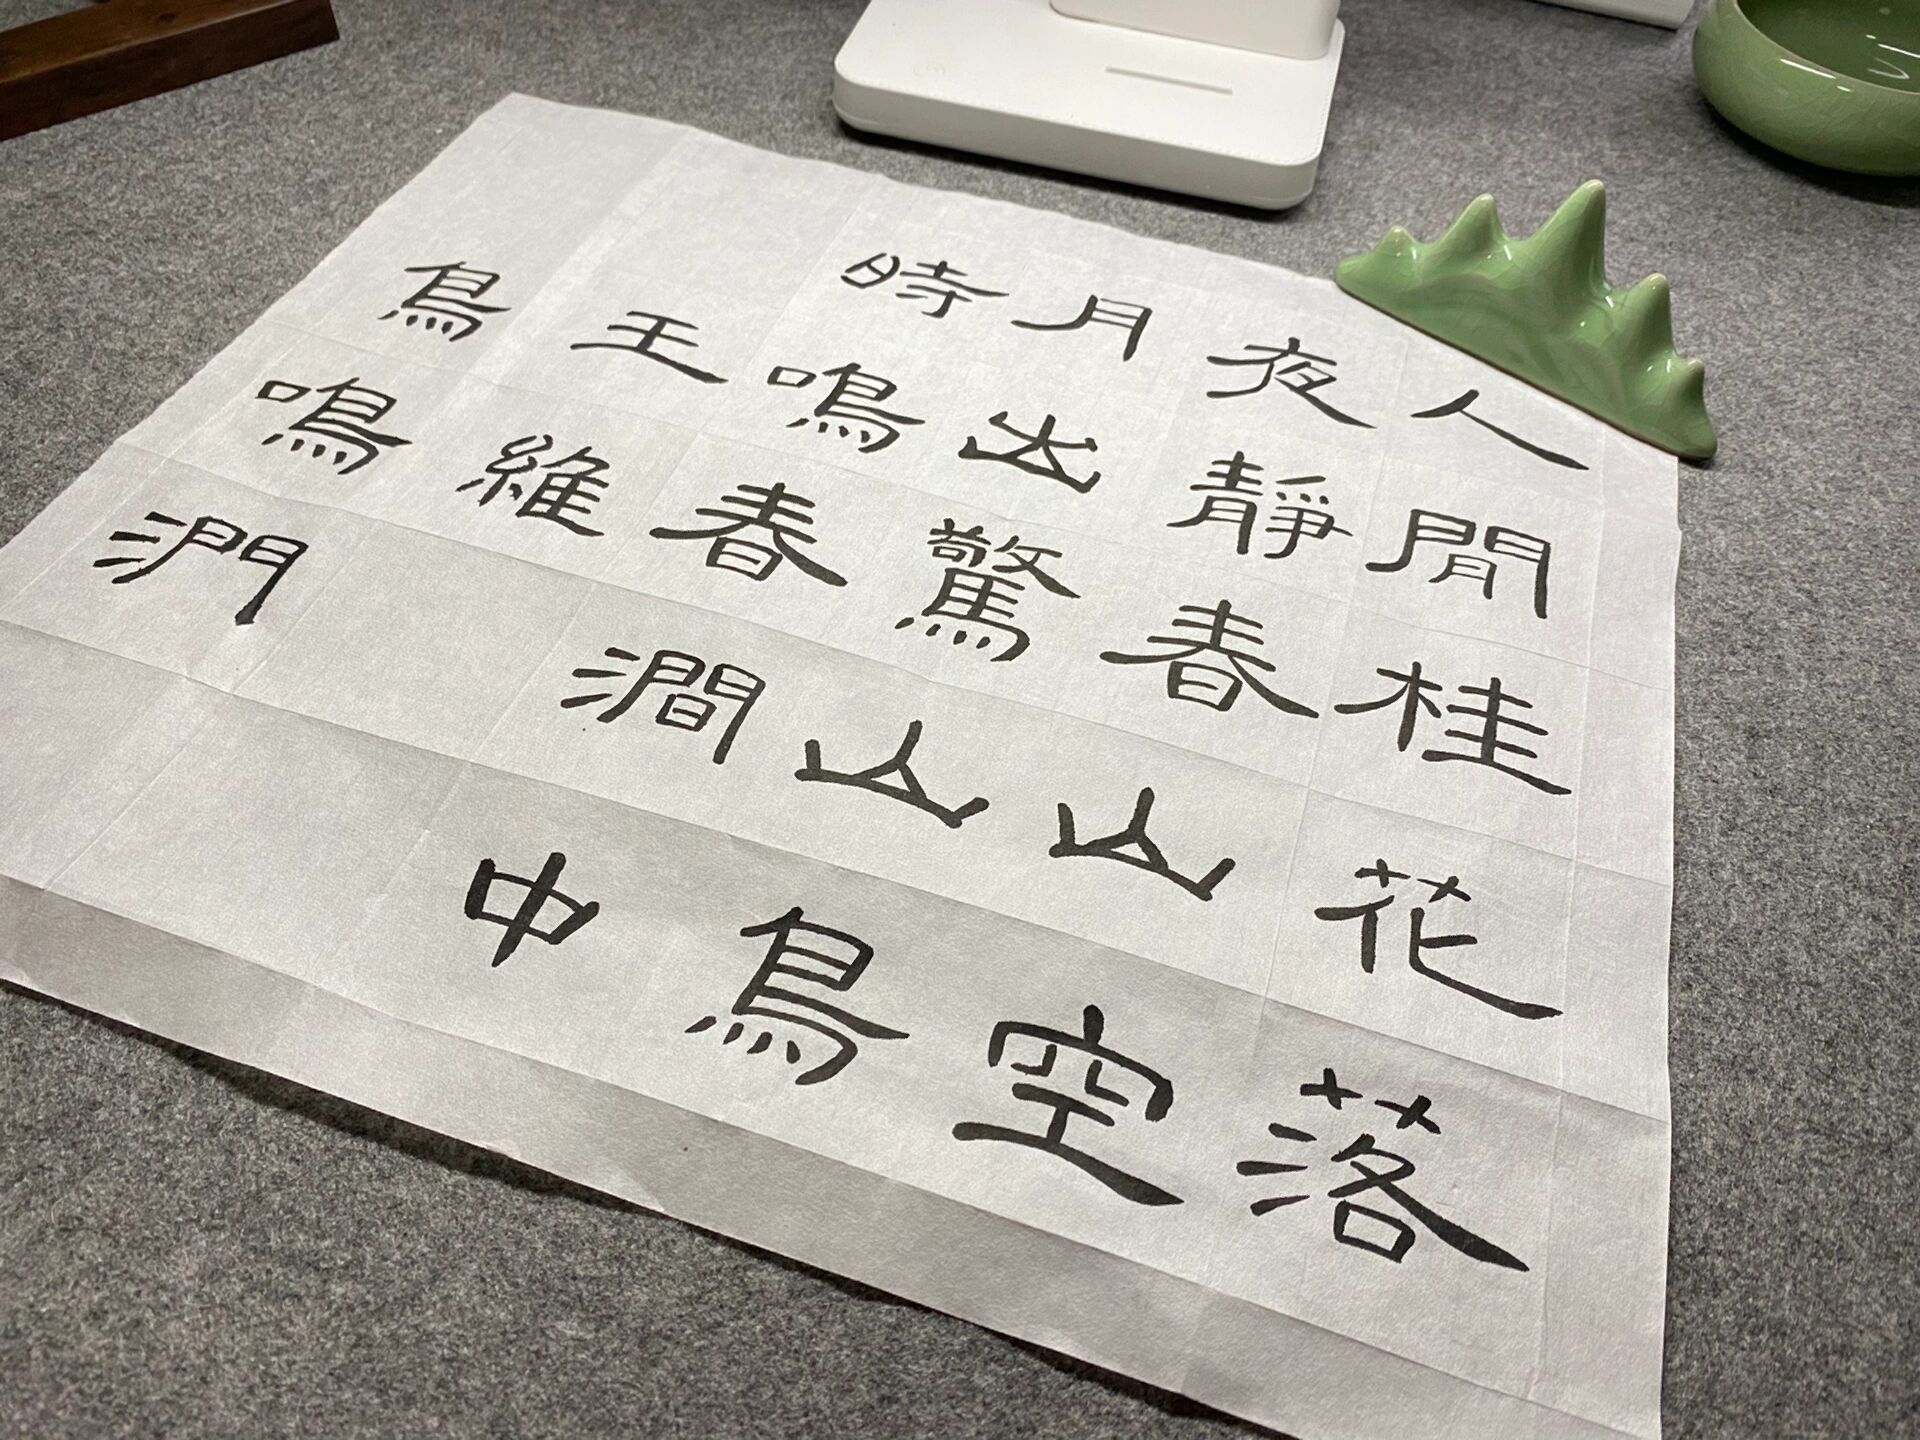 人閒桂花落
夜靜春山空
月出驚山鳥
時鳴春澗中
王維
鳥鳴